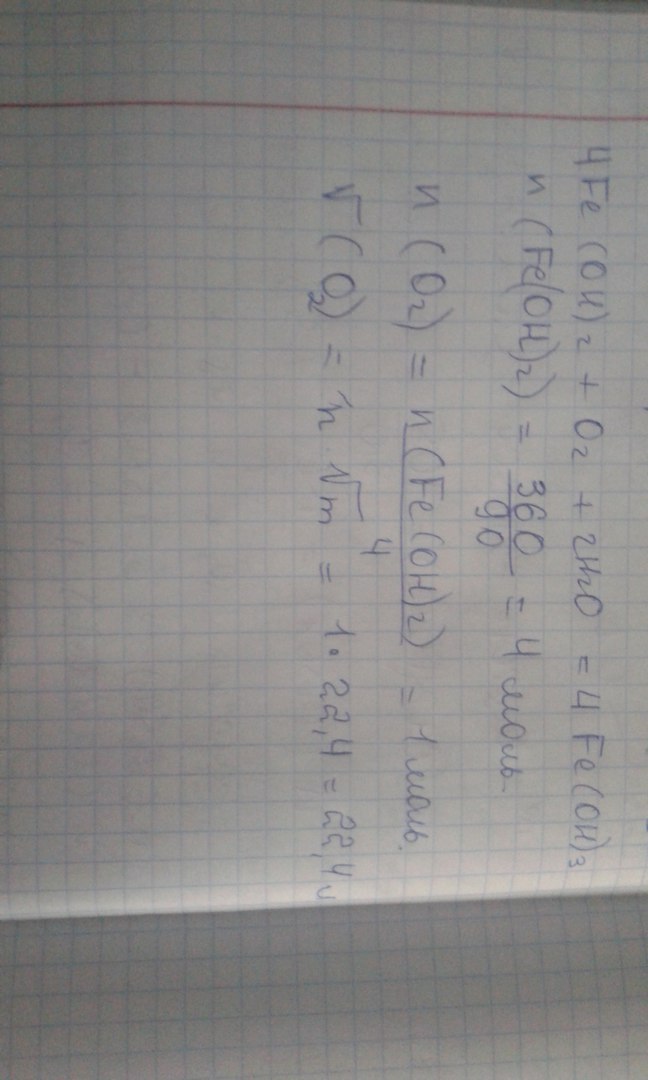 4Fe(OH)2 + O2 + 2H2O = 4Fe(OH)3
n(Fe(OH)2) = 360/90 = 4 моль
n(O2) = n(Fe(OH)2)/4 = 1 моль.
V(O2) = n·Vm = 1·22,4 = 22,4л